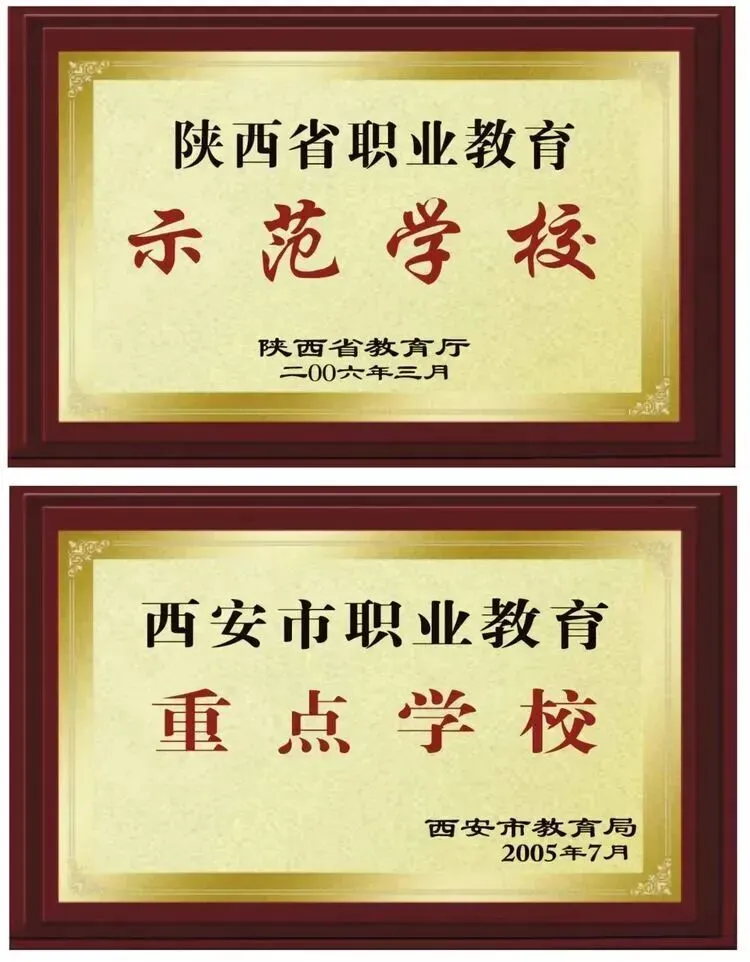 陕西省职业教育
示范学校
陕西省教育厅
二00六年三月
西安市职业教育
重点学校
西安市教育局
2005年7月